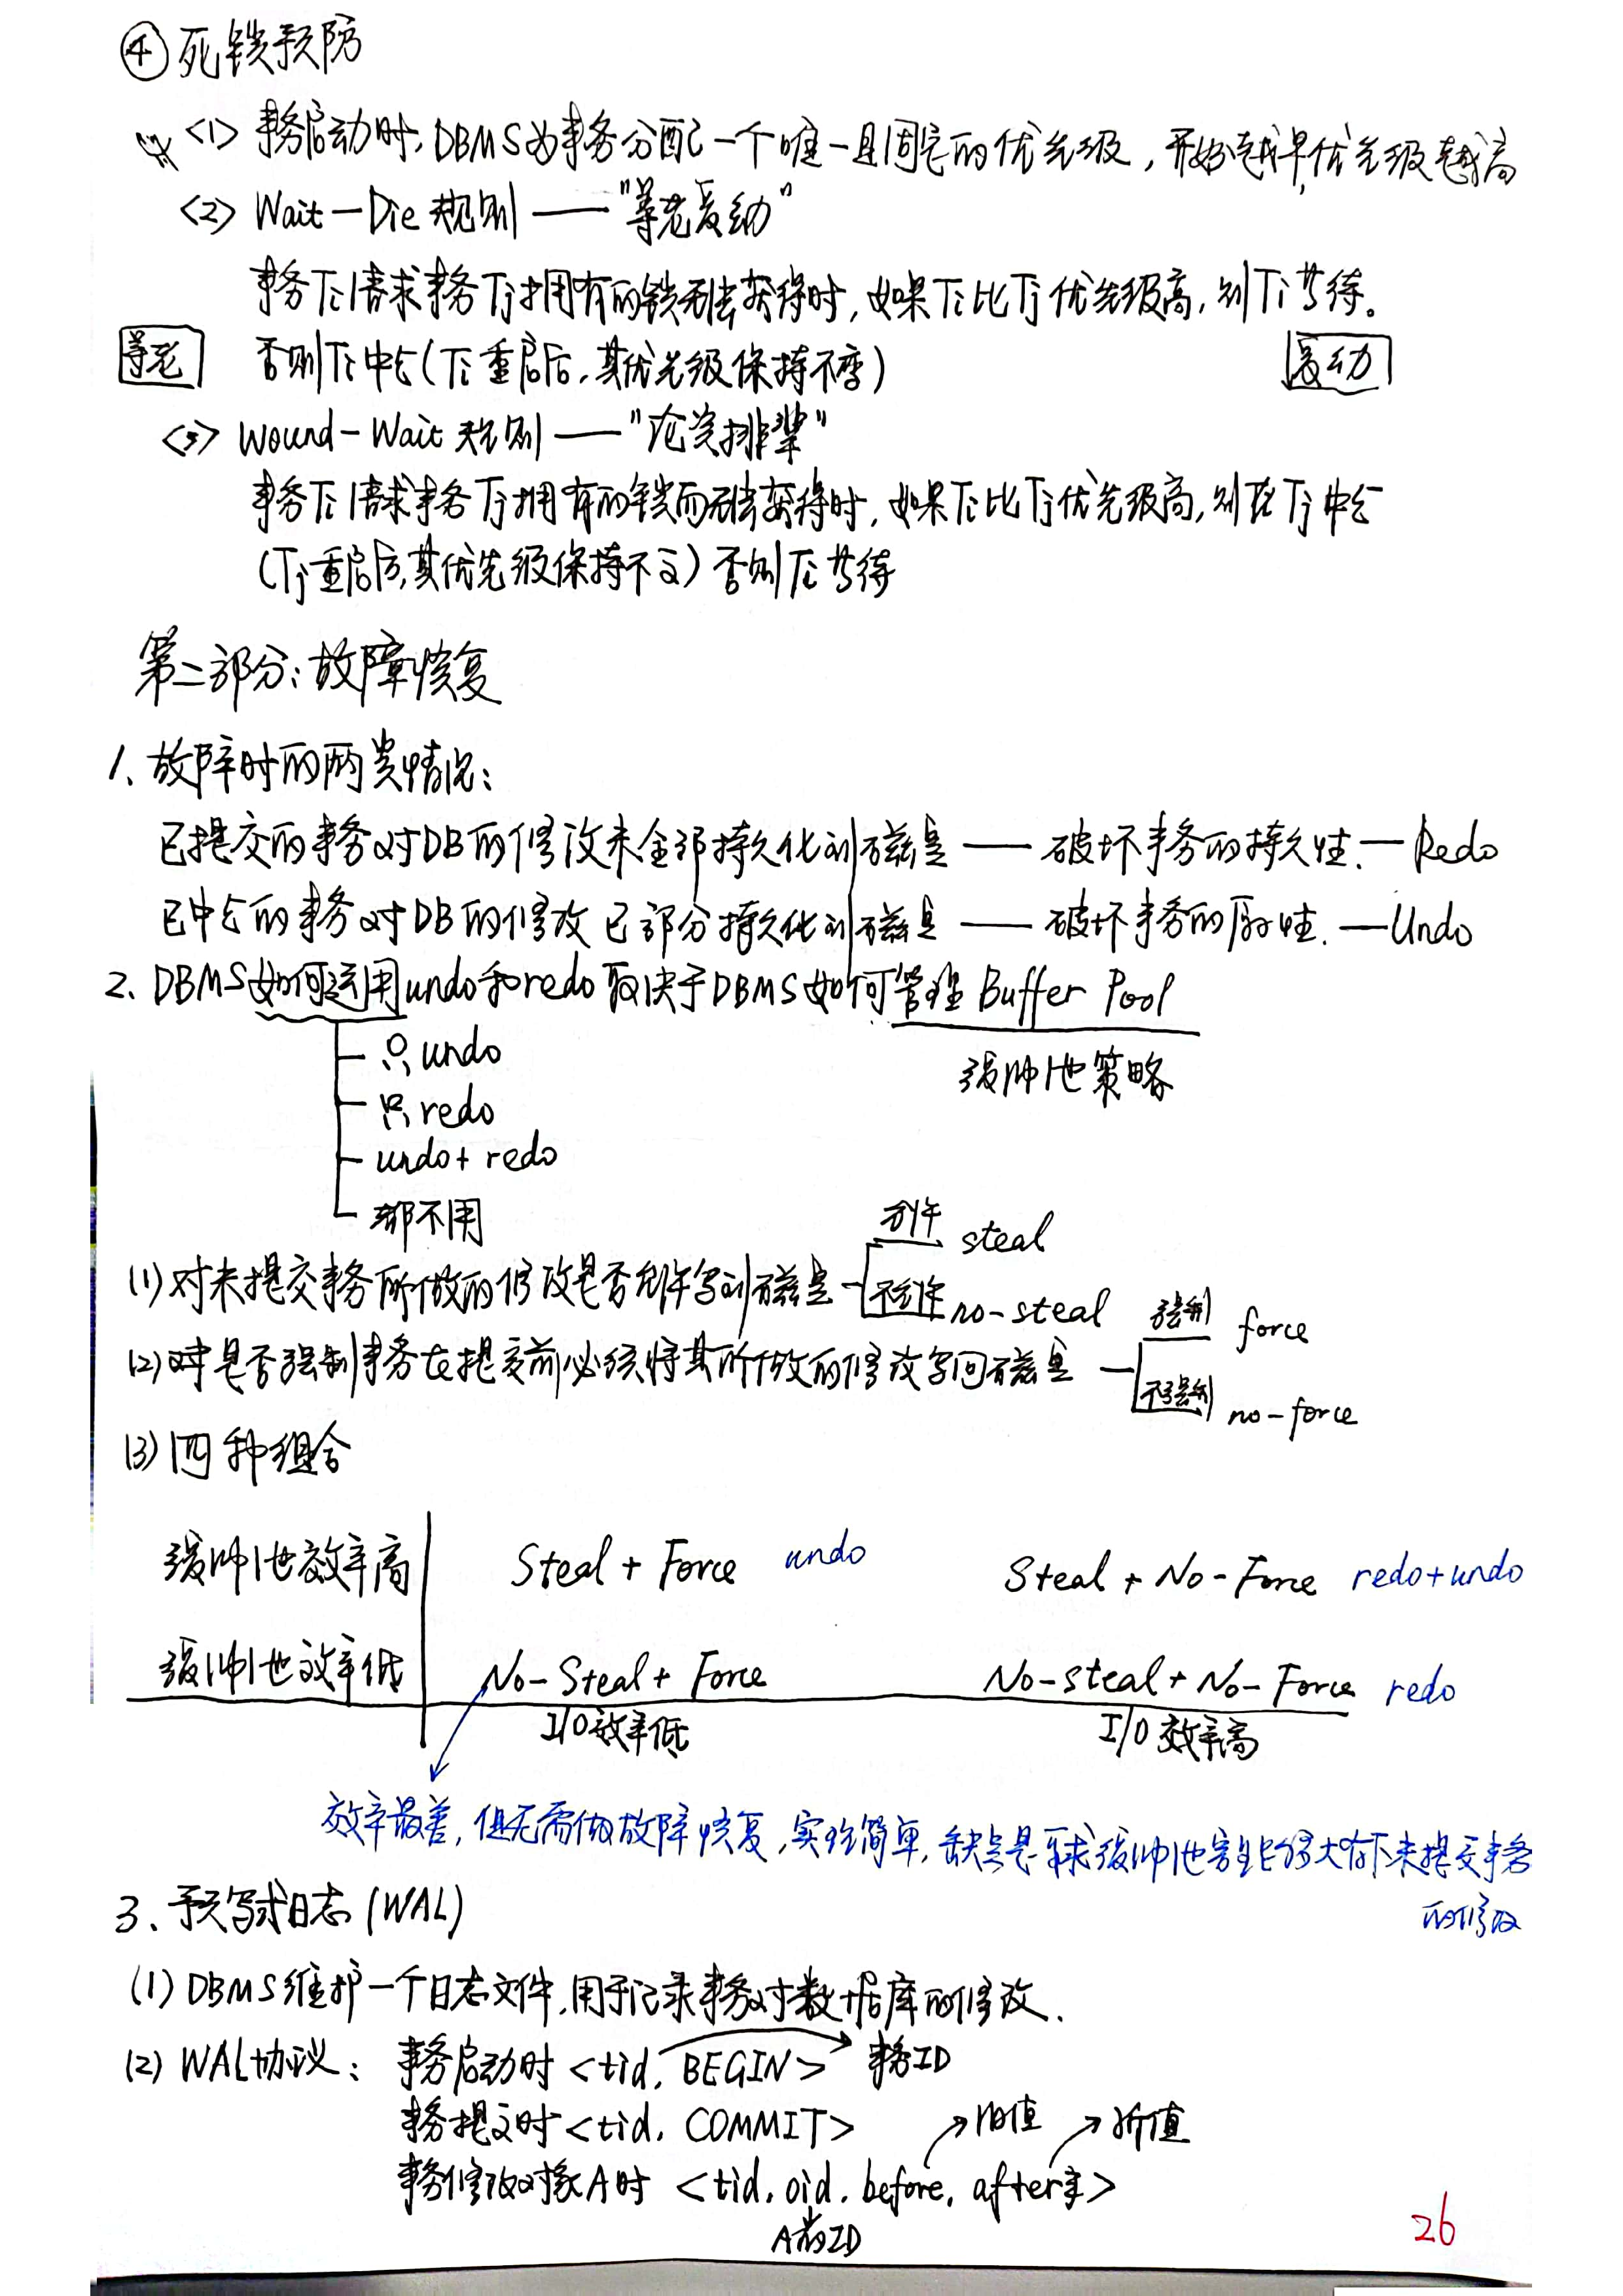 ④死锁预防
<1> 事务启动时,DBMS为事务分配一个唯一且固定的优先级,开始越早,优先级越高
<2> Wait-Die规则——"等老爱幼"
事务Ti请求事务Tj拥有的锁无法获得时,如果Ti比Tj优先级高,则Ti等待。
等老 否则Ti中止(Ti重启后,其优先级保持不变) 爱幼
<3> Wound-Wait规则——"论资排辈"
事务Ti请求事务Tj拥有的锁而无法获得时,如果Ti比Tj优先级高,则在Tj中止
(Tj重启后,其优先级保持不变) 否则Ti等待
第二部分:故障恢复
1、故障时的两类情况:
已提交的事务对DB的修改未全部持久化到磁盘——破坏事务的持久性.—Redo
已中止的事务对DB的修改已部分持久化到磁盘——破坏事务的原子性.—Undo
2、DBMS如何运用undo和redo取决于DBMS如何管理Buffer Pool
只undo
缓冲池策略
只redo
undo+redo
都不用
(1)对未提交事务所做的修改是否允许写到磁盘 允许 steal
不允许 no-steal
(2)对是否强制事务在提交前必须将其所做的修改写回磁盘 强制 force
不强制 no-force
(3)四种组合
缓冲池效率高 Steal + Force undo Steal + No-Force redo+undo
缓冲池效率低 No-Steal + Force No-steal + No-Force redo
I/O效率低 I/O效率高
效率最差,但无需做故障恢复,实现简单,缺点是要求缓冲池容量能够大 存下未提交事务
的修改
3、预写式日志(WAL)
(1)DBMS维护一个日志文件,用于记录事务对数据库的修改.
(2)WAL协议: 事务启动时<tid, BEGIN> 事务ID
事务提交时<tid, COMMIT> 旧值 新值
事务修改对象A时 <tid, oid, before, after>
A的ID
26